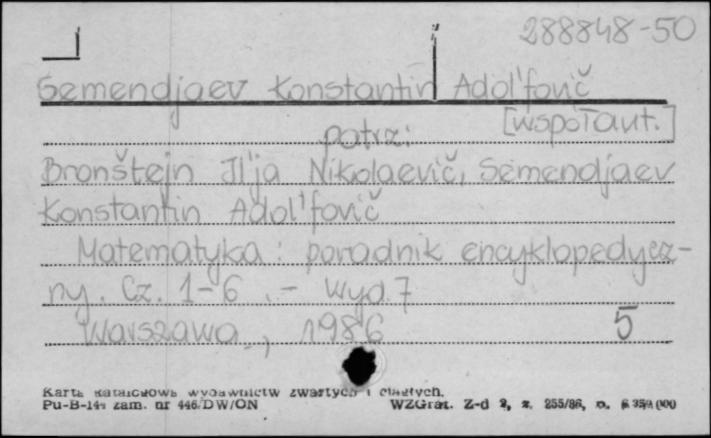 288848-50
Semendjaev Konstantin Adol'fovič
[współaut.]
patrz:
Bronštejn Il'ja Nikolaevič, Semendjaev
Konstantin Adol'fovič
Matematyka : poradnik encyklopedycz-
ny. Cz. 1-6 .- Wyd. 7
Warszawa, 1986 5
Karta katalogowa wydawnictw zwartych i ciągłych.
Pu-B-144 zam. nr 446/DW/ON WZGraf. Z-d 2, z. 255/86, n.